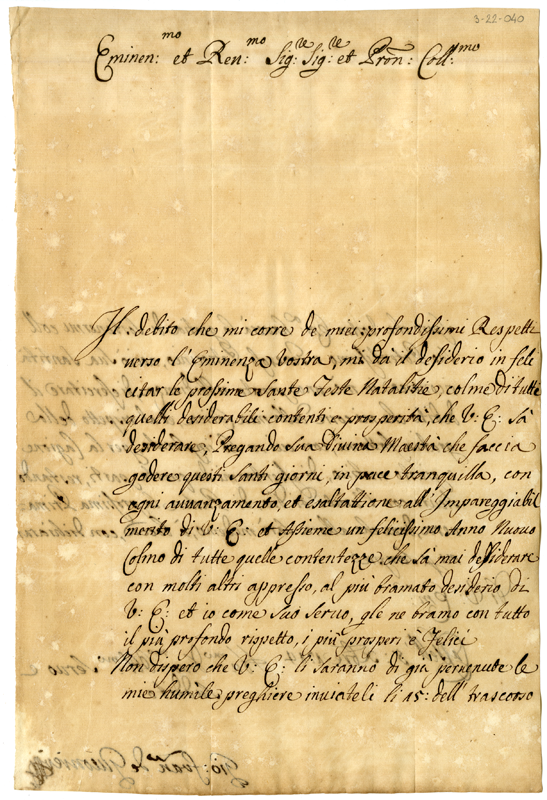 3-22-040
Eminen:mo et Reu:mo Sig:re Sig:re et Pron: Coll:mo
Il debito che mi corre de miei profondissimi Respetti
verso l'Eminenza Vostra, mi dà il desiderio in feli
citar le prossime Sante Feste Natalitie, colme di tutte
quelli desiderabili contenti e prosperità, che V: E: sà
desiderare, Pregando Sua Divina Maestà che faccia
godere questi Santi giorni in pace tranquilla, con
ogni auuanzamento, et esaltatione all' Impareggiabil
merito di V: E: et Assieme un felicissimo Anno Nuouo
Colmo di tutte quelle contentezze che sà mai dessiderare
con molti altri appresso, al più bramato desiderio di
V: E: et io come suo seruo, gle ne bramo con tutto
il più profondo rispetto, i più prosperi e Felici
Non dispero che V: E: li saranno di già peruenute le
mie humile preghiere inuiateli li 15: dell' trascorso